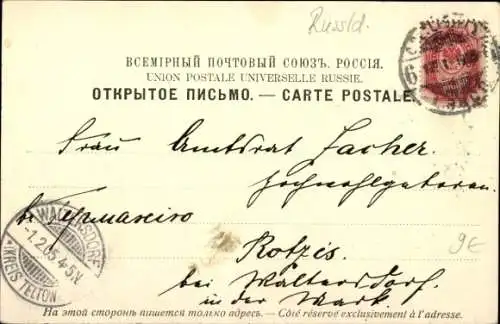 Russld.
ВСЕМІРНЫЙ ПОЧТОВЫЙ СОЮЗЪ. РОССІЯ.
UNION POSTALE UNIVERSELLE RUSSIE.
ОТКРЫТОЕ ПИСЬМО. — CARTE POSTALE.
Frau Amtsrat Zacher.
Hochwohlgeboren
въ Германiю
Rotzis.
9€
bei Waltersdorf.
in der Mark.
WALTERSDORF
-1.2.05.4-5N.
(KREIS TELTOW)
На этой сторонѣ пишется только адресъ. — Côté réservé exclusivement à l'adresse.